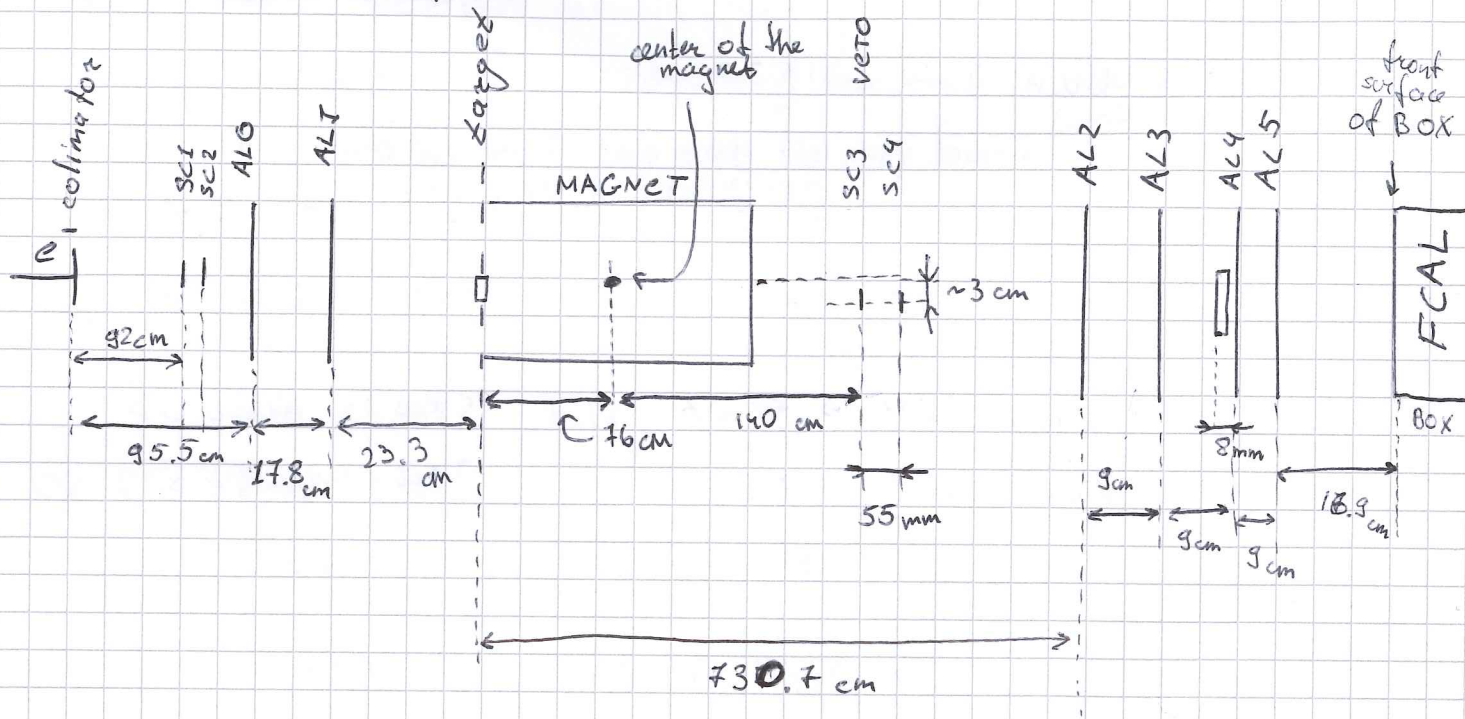 e⁻
colimator
SC1
SC2
AL0
AL1
target
center of the
magnet
MAGNET
veto
SC3
SC4
AL2
AL3
AL4
AL5
front
surface
of BOX
FCAL
BOX
~3 cm
92cm
95.5cm
17.8 cm
23.3 cm
76cm
140 cm
55mm
8mm
9cm
9cm
9cm
cm
730.7 cm